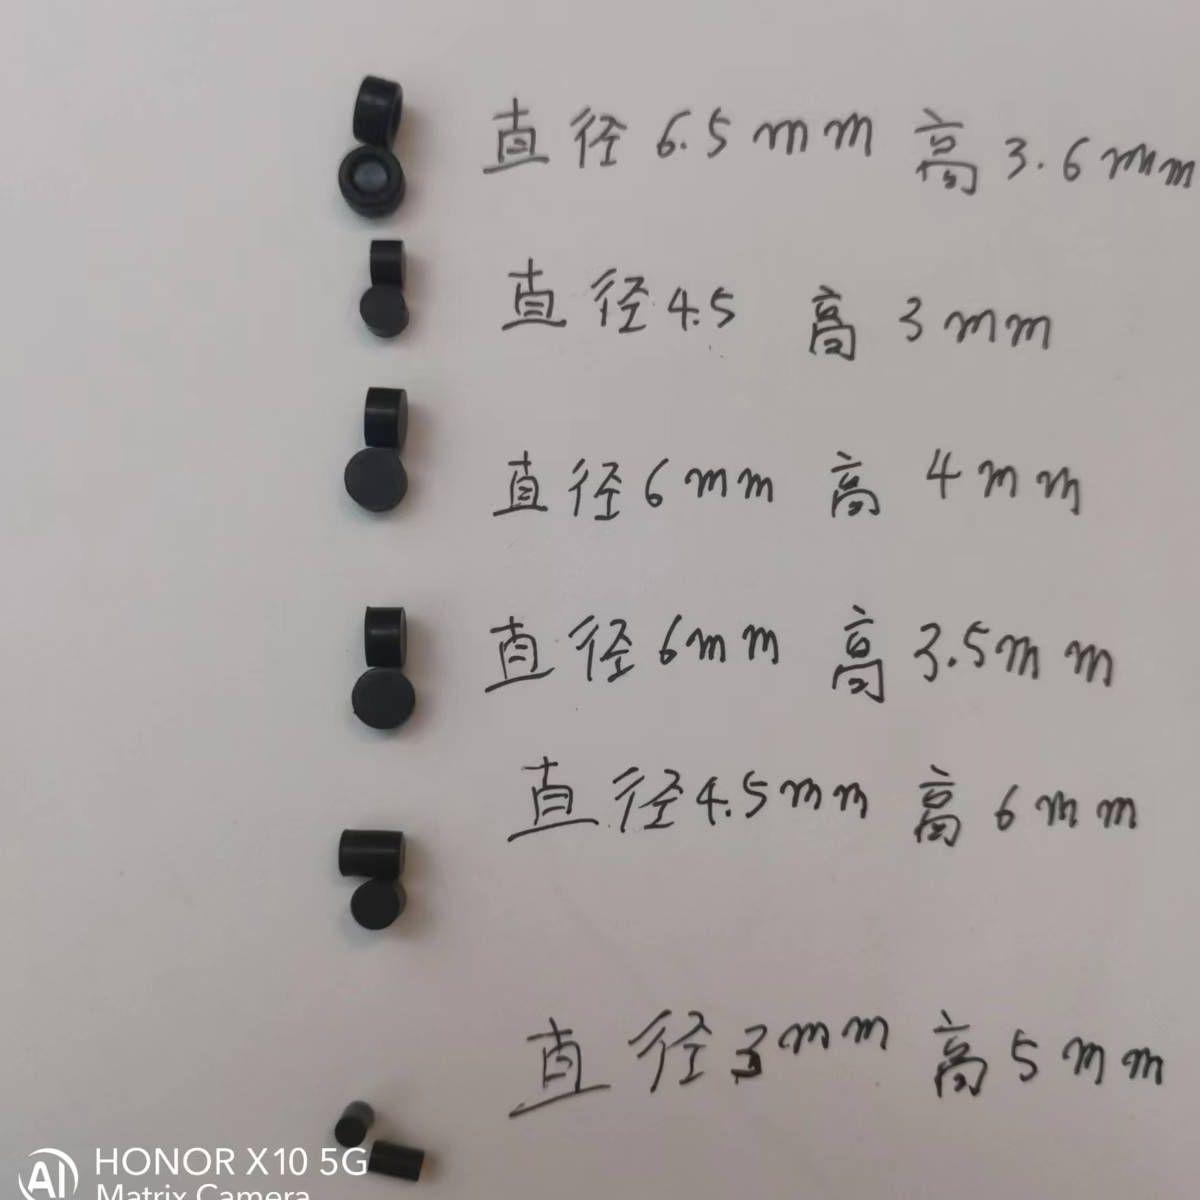 直径6.5mm 高3.6mm
直径4.5 高3mm
直径6mm 高4mm
直径6mm 高3.5mm
直径4.5mm 高6mm
直径3mm 高5mm
AI HONOR X10 5G
Matrix Camera